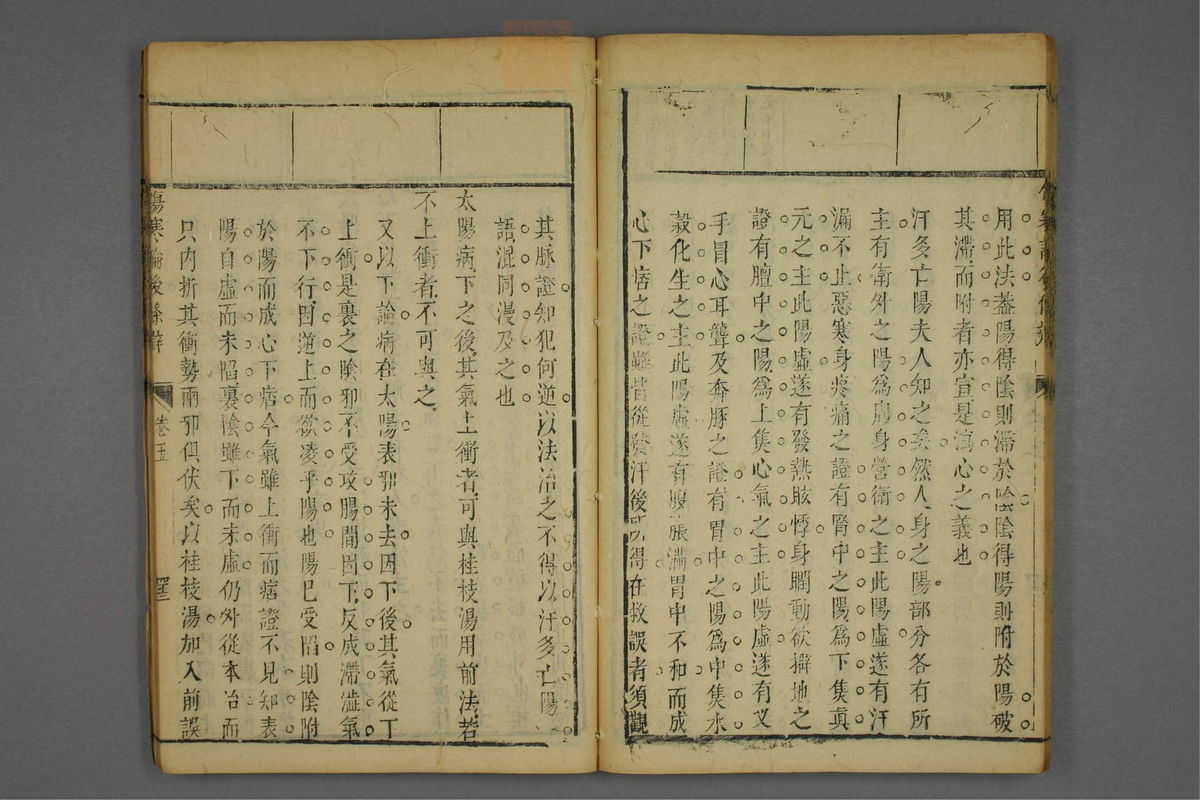 用此法蓋陽得陰則滯於陰陰得陽則附於陽破
其滯而附者亦宣是瀉心之義也
汗多亡陽夫人知之矣然人身之陽部分各有所
主有衛外之陽爲周身營衛之主此陽虛遂有汗
漏不止惡寒身疼痛之證有腎中之陽爲下焦眞
元之主此陽虛遂有發熱眩悸身瞤動欲擗地之
證有膻中之陽爲上焦心氣之主此陽虛遂有叉
手冒心耳聾及奔豚之證有胃中之陽爲中焦水
穀化生之主此陽虛遂有腹脹滿胃中不和而成
心下痞之證雖皆從發汗後所得在救誤者須觀
其脉證知犯何逆以法治之不得以汗多亡陽
語混同漫及之也
太陽病下之後其氣上衝者可與桂枝湯用前法若
不上衝者不可與之
又以下論病在太陽表邪未去因下後其氣從下
上衝是裏之陰邪不受攻腸間因下反成滯澁氣
不下行因逆上而欲凌乎陽也陽已受陷則陰附
於陽而成心下痞今氣雖上衝而痞證不見知表
陽自虛而未陷裏陰雖下而未虛仍外從本治而
只內折其衝勢兩邪俱伏矣以桂枝湯加入前誤
傷寒論後條辨
卷五